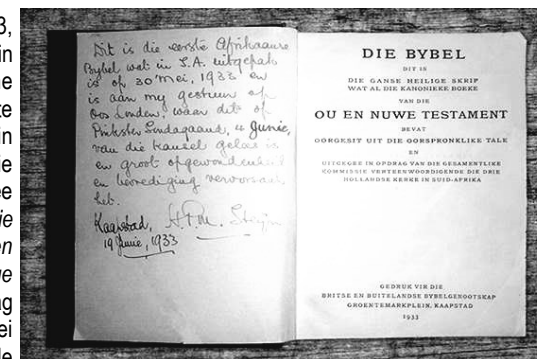 3,
in
ne
te
in
ie
ee
ie
en
ge
ng
ei
Dit is die eerste Afrikaanse
Bybel wat in S.A. uitgepak
is op 30 Mei, 1933 en
is aan my gestuur op
Oos Linden, waar dit op
Pinkster Sondagaand, 4 Junie,
van die kansel gelees is
en groot opgewondenheid
en bevrediging veroorsaak
het.
Kaapstad,
19 Junie, 1933
DIE BYBEL
DIT IS
DIE GANSE HEILIGE SKRIF
WAT AL DIE KANONIEKE BOEKE
VAN DIE
OU EN NUWE TESTAMENT
BEVAT
OORGESIT UIT DIE OORSPRONKLIKE TALE
EN
UITGEGEE IN OPDRAG VAN DIE GESAMENTLIKE
KOMMISSIE VERTEENWOORDIGENDE DIE DRIE
HOLLANDSE KERKE IN SUID-AFRIKA
GEDRUK VIR DIE
BRITSE EN BUITELANDSE BYBELGENOOTSKAP
GROENTEMARKPLEIN, KAAPSTAD
1933